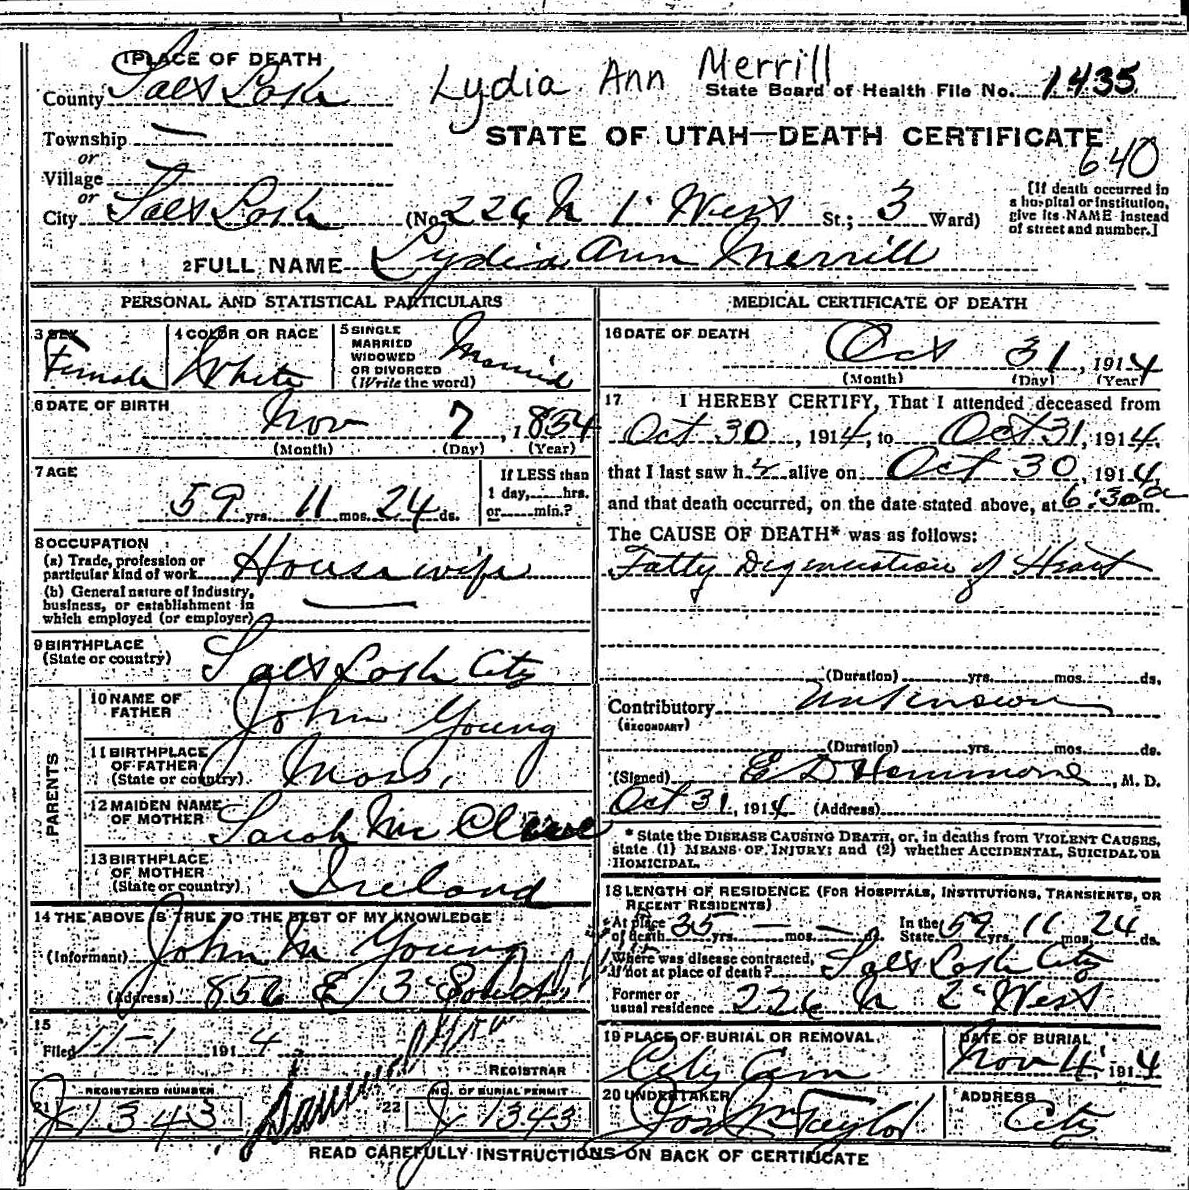 1 PLACE OF DEATH
County Salt Lake
Lydia Ann Merrill
State Board of Health File No. 1435
Township —
or
Village
or
STATE OF UTAH—DEATH CERTIFICATE
640
City Salt Lake (No. 226 N 1st West St.; 3 Ward)
[If death occurred in
a hospital or institution,
give its NAME instead
of street and number.]
2 FULL NAME Lydia Ann Merrill
PERSONAL AND STATISTICAL PARTICULARS
3 SEX
Female
4 COLOR OR RACE
White
5 SINGLE
MARRIED
WIDOWED
OR DIVORCED
(Write the word)
Married
6 DATE OF BIRTH
Nov 7, 1854
(Month) (Day) (Year)
7 AGE
59 yrs. 11 mos. 24 ds.
If LESS than
1 day, hrs.
or min.?
8 OCCUPATION
(a) Trade, profession or
particular kind of work Housewife
(b) General nature of industry,
business, or establishment in
which employed (or employer) —
9 BIRTHPLACE
(State or country) Salt Lake City
PARENTS
10 NAME OF
FATHER John Young
11 BIRTHPLACE
OF FATHER
(State or country) Mass.
12 MAIDEN NAME
OF MOTHER Sarah Mc
13 BIRTHPLACE
OF MOTHER
(State or country) Ireland
14 THE ABOVE IS TRUE TO THE BEST OF MY KNOWLEDGE
(Informant) John M Young
(Address) 852 E 3rd South
15
Filed 11-1 1914
REGISTRAR
REGISTERED NUMBER
21 J 1343
NO. OF BURIAL PERMIT
22 J 1343
MEDICAL CERTIFICATE OF DEATH
16 DATE OF DEATH
Oct 31, 1914
(Month) (Day) (Year)
17 I HEREBY CERTIFY, That I attended deceased from
Oct 30, 1914, to Oct 31, 1914,
that I last saw h er alive on Oct 30, 1914,
and that death occurred, on the date stated above, at 6:30 a m.
The CAUSE OF DEATH* was as follows:
Fatty Degeneration of Heart
(Duration) yrs. mos. ds.
Contributory Unknown
(SECONDARY)
(Duration) yrs. mos. ds.
(Signed) E D Hammond, M. D.
Oct 31, 1914 (Address)
* State the DISEASE CAUSING DEATH, or, in deaths from VIOLENT CAUSES,
state (1) MEANS OF INJURY; and (2) whether ACCIDENTAL, SUICIDAL OR
HOMICIDAL.
18 LENGTH OF RESIDENCE (FOR HOSPITALS, INSTITUTIONS, TRANSIENTS, OR
RECENT RESIDENTS)
At place
of death 35 yrs. — mos. — ds.
In the
State 59 yrs. 11 mos. 24 ds.
Where was disease contracted,
if not at place of death? Salt Lake City
Former or
usual residence 226 N 2nd West
19 PLACE OF BURIAL OR REMOVAL
City Cem
DATE OF BURIAL
Nov 4, 1914
20 UNDERTAKER
Jos Wm Taylor
ADDRESS
City
READ CAREFULLY INSTRUCTIONS ON BACK OF CERTIFICATE